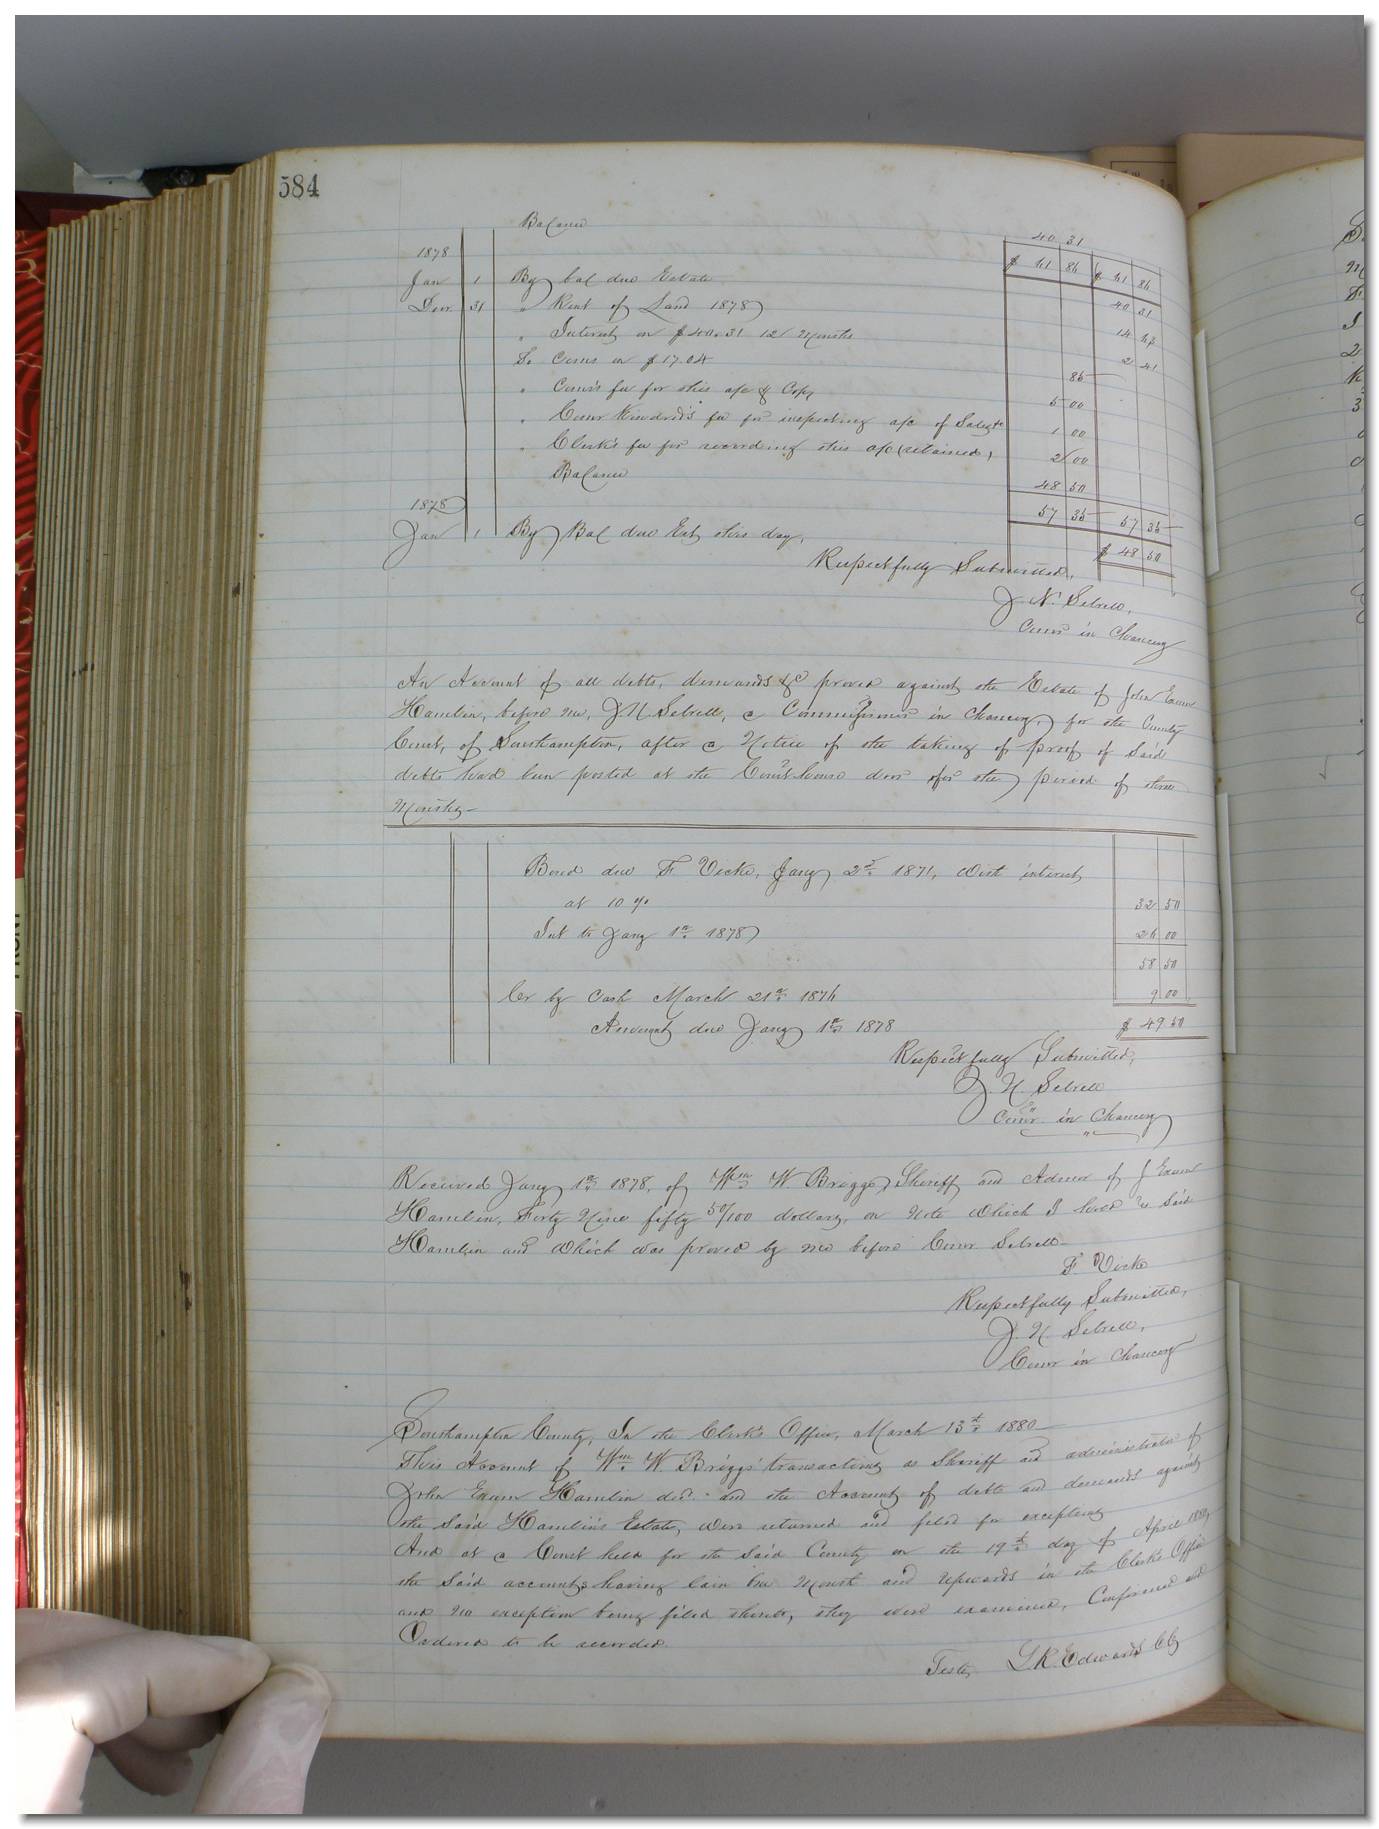 584
Balance 40 31
1878 $ 61 86 $ 61 86
Jan 1 By bal due Estate 40 31
Decr 31 " Rent of Land 1878 14 62
" Interest on $40.31 12 Months 2 41
To Coms on $17.04 85
" Comr's fee for this a/c & Copy 5 00
" Comr Kindred's fee for inspecting a/c of Sales &c 1 00
" Clerk's fee for recording this a/c (retained) 2 00
Balance 48 50
1878 57 35 57 35
Jan 1 By Bal due Est this day, $ 48 50
Respectfully Submitted,
J. N. Sebrell,
Comr in Chancery
An Account of all debts, demands &c proved against the Estate of John Exum
Hamlin, before me, J N Sebrell, a Commissioner in Chancery, for the County
Court, of Southampton, after a Notice of the taking of proof of Said
debts had been posted at the Court house door for the period of three
Months—
Bond due F. Vicks, Jany 2d 1871, with interest
at 10 % 32 50
Int to Jany 1st 1878 26 00
58 50
Cr by Cash March 21st 1876 9 00
Amount due Jany 1st 1878 $ 49 50
Respectfully Submitted,
J. N. Sebrell
Comr in Chancery
Received Jany 1st 1878, of Wm W. Briggs, Sheriff and Admor of J Exum
Hamlin, Forty Nine fifty 50/100 dollars, on Note which I hold vs Said
Hamlin and which was proved by me before Comr Sebrell—
F. Vicks
Respectfully Submitted,
J. N. Sebrell,
Comr in Chancery
Southampton County, In the Clerk's Office, March 13th 1880
This Account of Wm W. Briggs' transactions as Sheriff and administrator of
John Exum Hamlin decd. and the Account of debts and demands against
the Said Hamlin's Estate, were returned and filed for exceptions
And at a Court held for the Said County on the 19th day of April 1880,
the Said accounts having lain one Month and Upwards in the Clerk's Office
and no exception being filed thereto, they were examined, Confirmed and
Ordered to be recorded.
Teste, L. R. Edwards CC